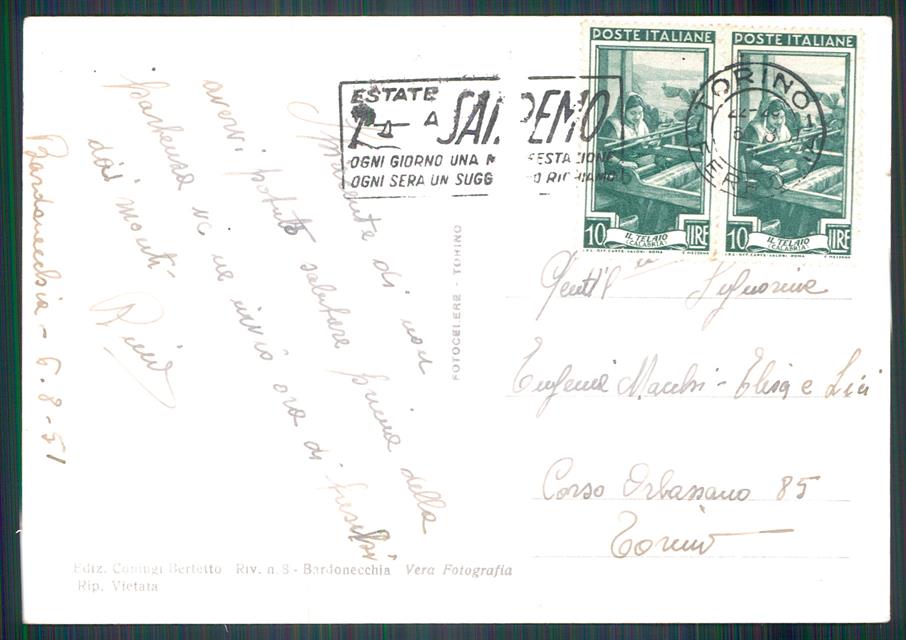 POSTE ITALIANE
10 LIRE
IL TELAIO
(CALABRIA)
I.P.S. OFF. CARTE-VALORI - ROMA
POSTE ITALIANE
10 LIRE
IL TELAIO
(CALABRIA)
I.P.S. OFF. CARTE-VALORI - ROMA
TORINO
ESTATE
A SANREMO
OGNI GIORNO UNA M FESTAZIONE
OGNI SERA UN SUGG O RICHIAMO
Bardonecchia - 6-8-51
di non
avervi potuto salutare prima della
partenza ve ne invio ora di freschi
dai monti
FOTOCELERE - TORINO
Gent.
Signorine
Eugenia - Elisa e
Corso Orbassano 85
Torino
Ediz. Coniugi Bertetto Riv. n. 8 - Bardonecchia Vera Fotografia
Rip. Vietata